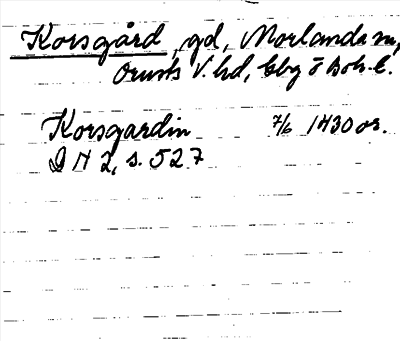 Korsgård, gd, Morlanda sn,
Orusts V. hd, Gbg o Boh. l.
Korsgardin 7/6 1430 or.
D N 2, s. 527